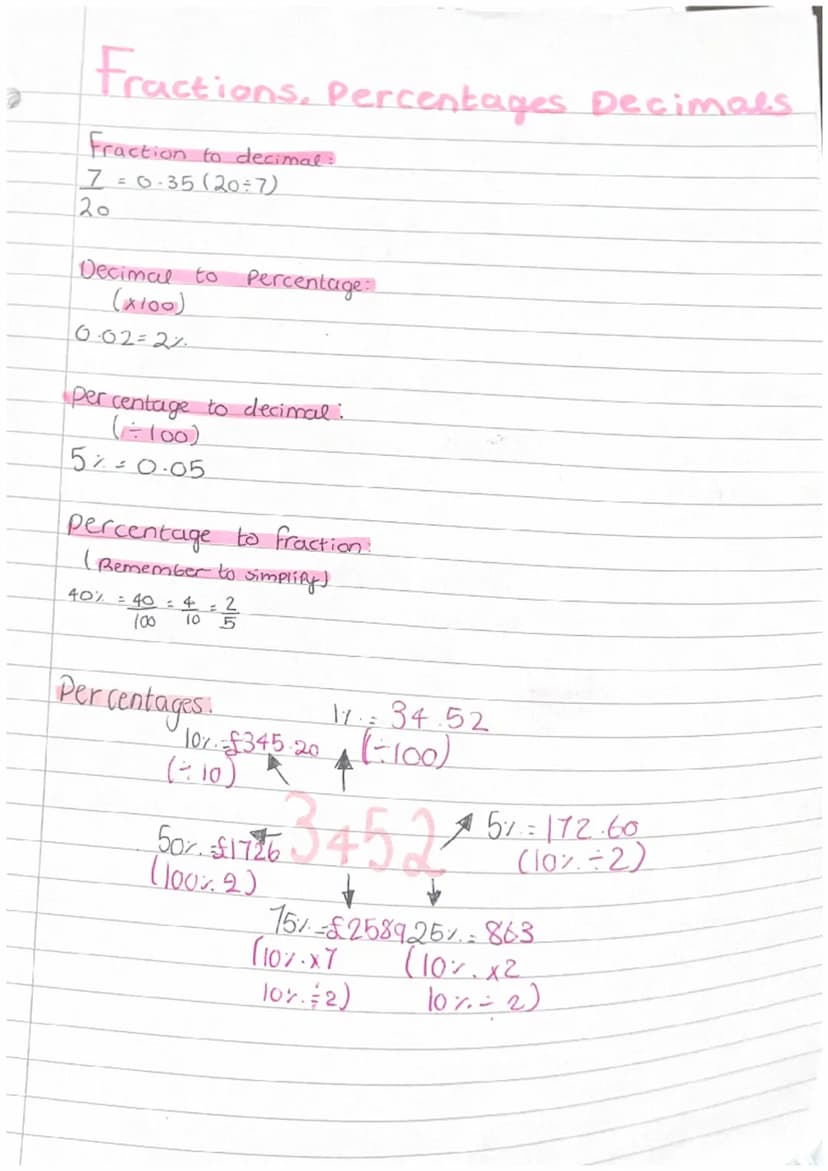 Fractions, Percentages Decimals
Fraction to decimal:
7/20 = 0.35 (20÷7)
Decimal to Percentage:
(x100)
0.02=2%
percentage to decimal:
(÷100)
5% = 0.05
percentage to fraction:
(Remember to simplify)
40% = 40/100 = 4/10 = 2/5
Percentages:
1% = 34.52
10% = £345.20 (÷100)
(÷10)
3452
5% = 172.60
50% = £1726 (10% ÷2)
(100% 2)
75% = £2589 25% = 863
(10% x7 (10% x2
10% ÷2) 10% ÷ 2)